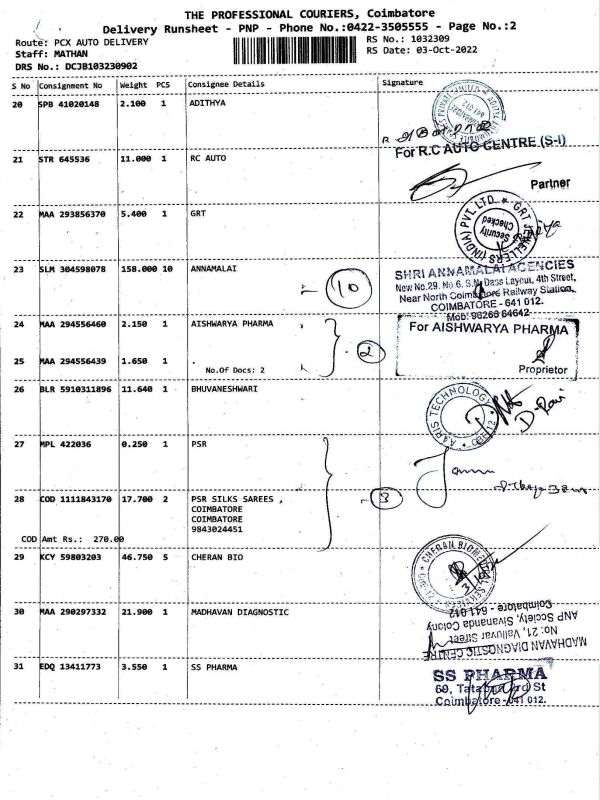 THE PROFESSIONAL COURIERS, Coimbatore
Delivery Runsheet - PNP - Phone No.:0422-3505555 - Page No.:2
Route: PCX AUTO DELIVERY RS No.: 1032309
Staff: MATHAN RS Date: 03-Oct-2022
DRS No.: DCJB103230902
S No Consignment No Weight PCS Consignee Details Signature
20 SPB 41020148 2.100 1 ADITHYA
21 STR 645536 11.000 1 RC AUTO
For R.C AUTO CENTRE (S-I)
Partner
22 MAA 293856370 5.400 1 GRT
GRT JEWELLERS (INDIA) PVT. LTD.
Security
Checked
23 SLM 304598078 158.000 10 ANNAMALAI
10
SHRI ANNAMALAI AGENCIES
New No.29, No.6, S.N. Dass Layout, 4th Street,
Near North Coimbatore Railway Station,
COIMBATORE - 641 012.
Mob: 98266 64642
24 MAA 294556460 2.150 1 AISHWARYA PHARMA
2
For AISHWARYA PHARMA
Proprietor
25 MAA 294556439 1.650 1 .
No.Of Docs: 2
26 BLR 5910311896 11.640 1 BHUVANESHWARI
AARIS TECHNOLOGY
27 MPL 422036 0.250 1 PSR
28 COD 1111843170 17.700 2 PSR SILKS SAREES ,
COIMBATORE
COIMBATORE
9843024451
3
COD Amt Rs.: 270.00
29 KCY 59803203 46.750 5 CHERAN BIO
CHERAN
30 MAA 290297332 21.900 1 MADHAVAN DIAGNOSTIC
MADHAVAN DIAGNOSTIC CENTRE
No: 21, Valluvar Street
ANP Society, Sivananda Colony
Coimbatore - 641 012
31 EDQ 13411773 3.550 1 SS PHARMA
SS PHARMA
69, Tatabad 3rd St
Coimbatore-641 012.